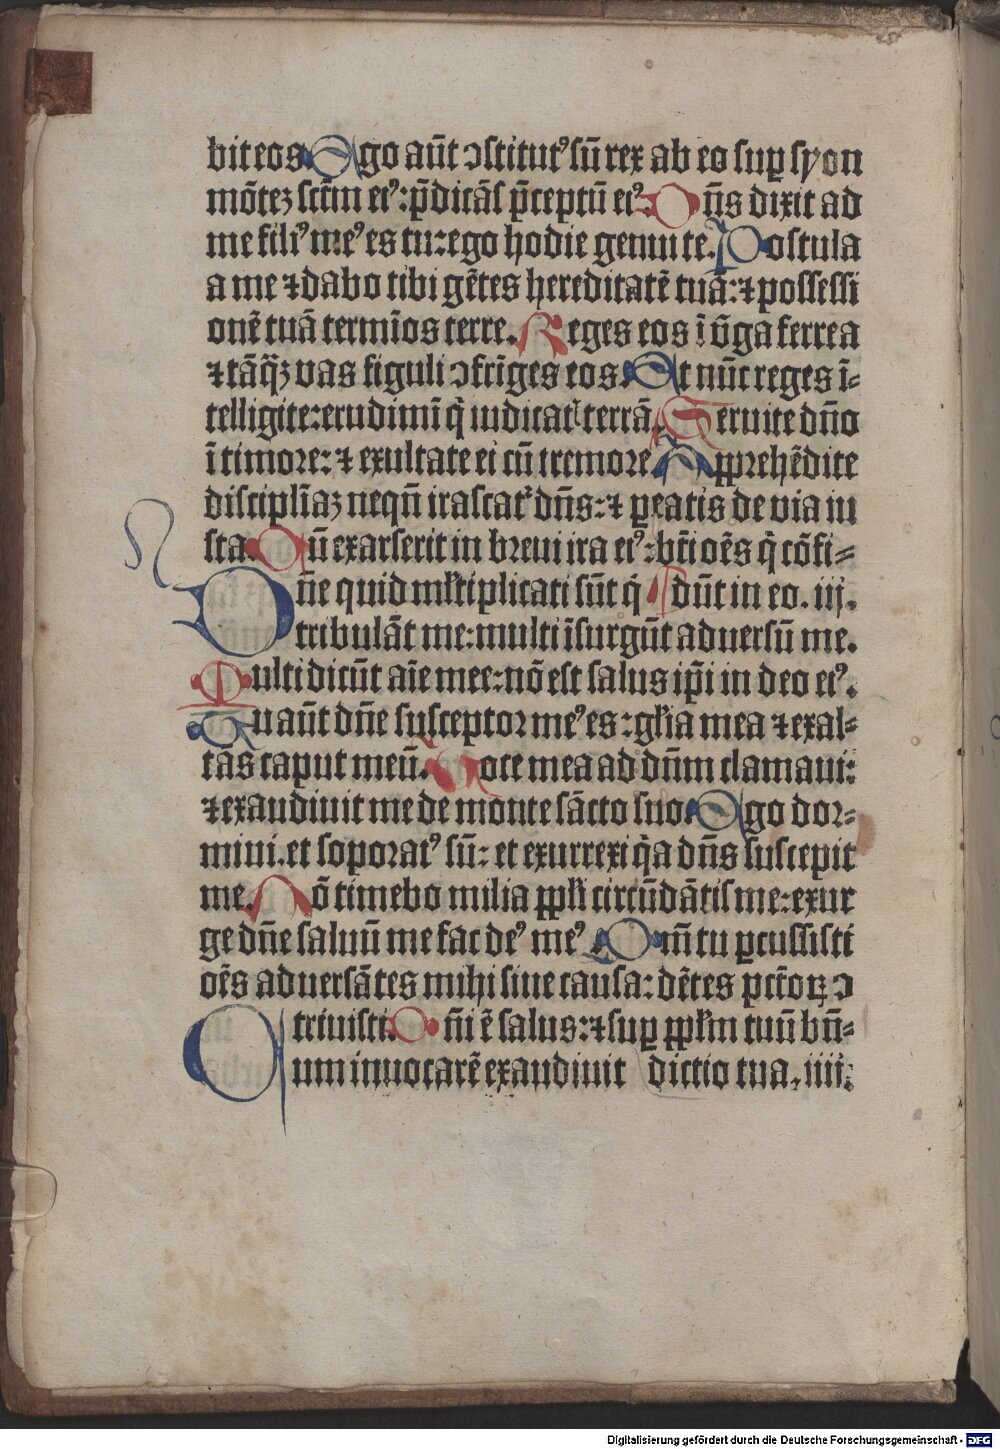 bit eos. Ego aūt ꝯstitutꝰ sū rex ab eo sup syon
mōtēz sctm̄ eiꝰ: p̄dicās p̄ceptū eiꝰ. Dn̄s dixit ad
me filiꝰ meꝰ es tu: ego hodie genui te. Postula
a me ⁊ dabo tibi gētes hereditatē tuā: ⁊ possessi
onē tuā termīos terre. Reges eos ī v̄ga ferrea
⁊ tāq̄ꝫ vas figuli ꝯfrīges eos. Et nūc reges ī-
telligite: erudimī q̄ iudicatꝭ terrā. Seruite dn̄o
ī timore: ⁊ exultate ei cū tremore. Apprehēdite
disciplīaꝫ neqn̄ irascatᷣ dn̄s: ⁊ ꝑeatis de via iu
sta. Cū exarserit in breui ira eiꝰ: bt̄i oēs q̄ cōfi-
Dn̄e quid ml̄tiplicati sūt q̄ dūt in eo. iij.
tribulāt me: multi īsurgūt aduersū me.
Multi dicūt aīe mee: nō est salus ip̄i in deo eiꝰ.
Tu aūt dn̄e susceptor meꝰ es: gl̄ia mea ⁊ exal-
tās caput meū. Voce mea ad dn̄m clamaui:
⁊ exaudiuit me de monte sācto suo. Ego dor-
miui. et soporatꝰ sū: et exurrexi q̄a dn̄s suscepit
me. Nō timebo milia ppl̄i circūdātis me: exur
ge dn̄e saluū me fac deꝰ meꝰ. Qm̄ tu ꝑcussisti
oēs aduersātes mihi sine causa: dētes pctōꝝ ꝯ
triuisti. Dn̄i ē salus: ⁊ sup ppl̄m tuū bn̄-
Cum inuocarē exaudiuit dictio tua. iiij.
Digitalisierung gefördert durch die Deutsche Forschungsgemeinschaft - DFG